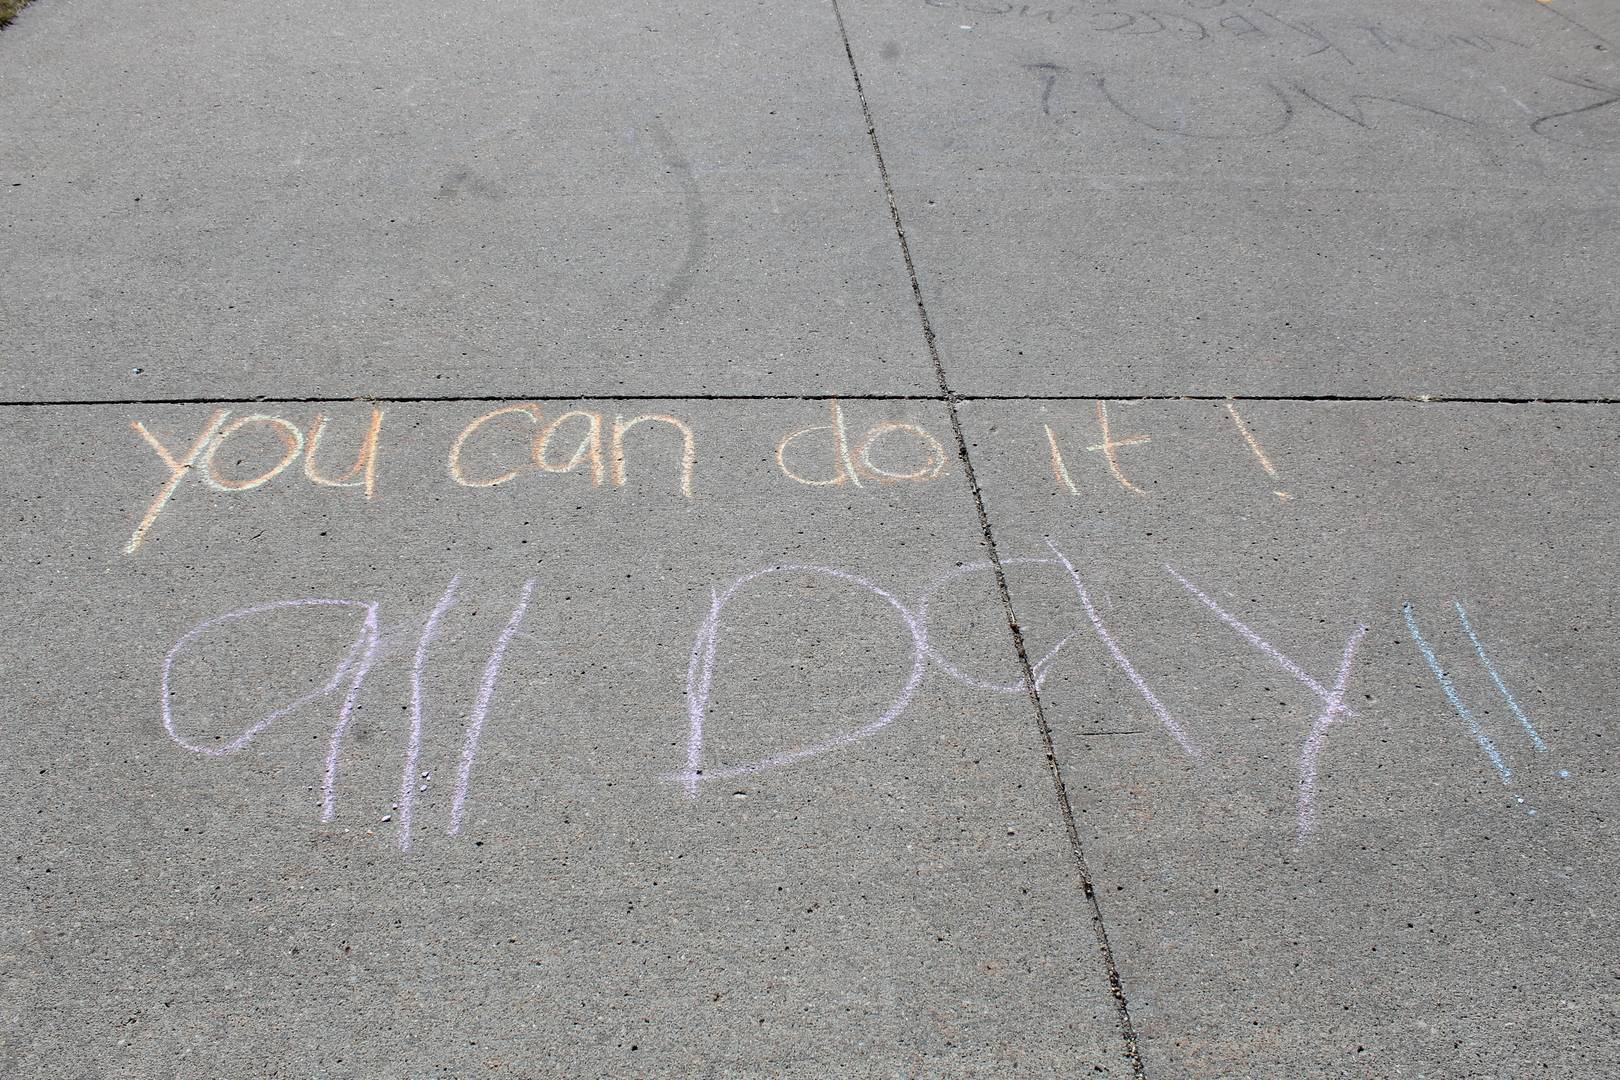 you can do it!
all DaY!!